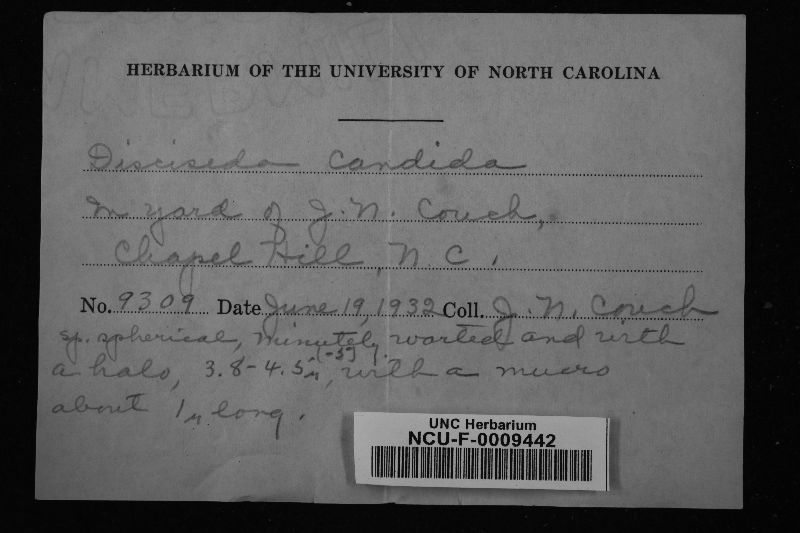 HERBARIUM OF THE UNIVERSITY OF NORTH CAROLINA
Disciseda candida
In yard of J. N. Couch,
Chapel Hill, N. C.
No. 9309 Date June 19, 1932 Coll. J. N. Couch
sp. spherical, minutely warted and with
a halo, 3.8-4.5μ, with a mucro
about 1μ long.
UNC Herbarium
NCU-F-0009442